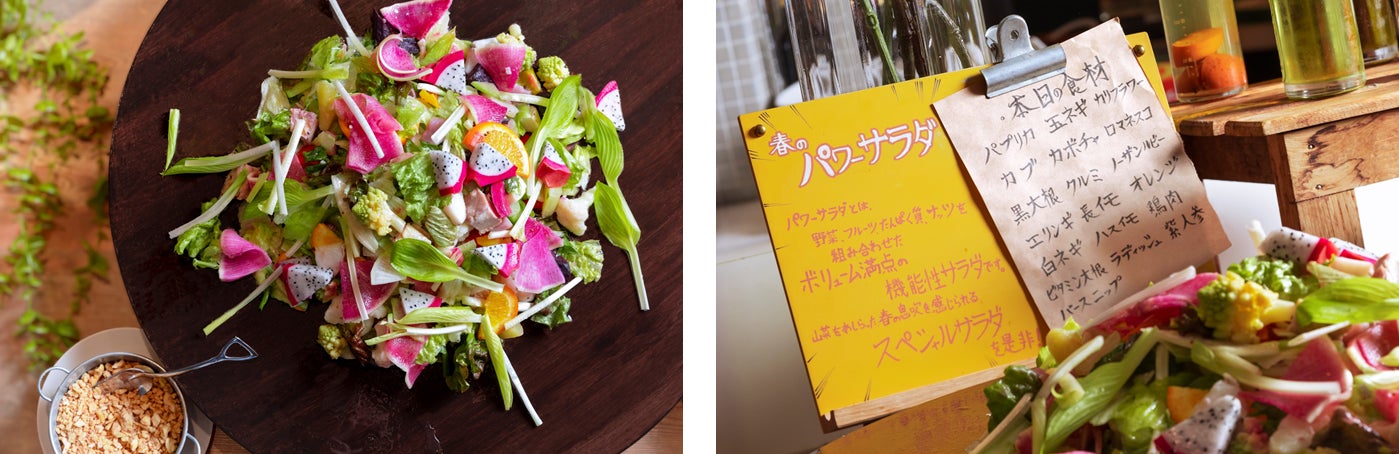 春の
パワーサラダ
パワーサラダとは、
野菜、フルーツ、たんぱく質、ナッツを
組み合わせた
ボリューム満点の
機能性サラダです。
山菜をあしらった春の息吹を感じられる
スペシャルサラダ
を是非
・本日の食材
パプリカ 玉ネギ カリフラワー
カブ カボチャ ロマネスコ
黒大根 クルミ ノーザンルビー
エリンギ 長イモ オレンジ
白ネギ ハスイモ 鶏肉
ビタミン大根 ラディッシュ 紫人参
パースニップ